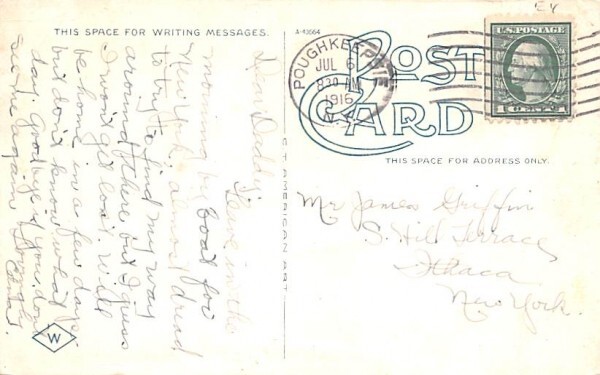 THIS SPACE FOR WRITING MESSAGES.
Dear Daddy:
I leave in the
morning by boat for
New York, almost dread
to try to find my way
around there but I guess
I won't get lost. Will
be home in a few days
but don't know what
day. Goodbye if you don't
see me again. Lovingly
W
A-43664
POST CARD
POUGHKEEPSIE
JUL 6
830 PM
1916
N.Y.
U.S. POSTAGE
EY
THIS SPACE FOR ADDRESS ONLY.
CT AMERICAN ART
Mr James Griffin
S. Hill Terrace
Ithaca
New York.